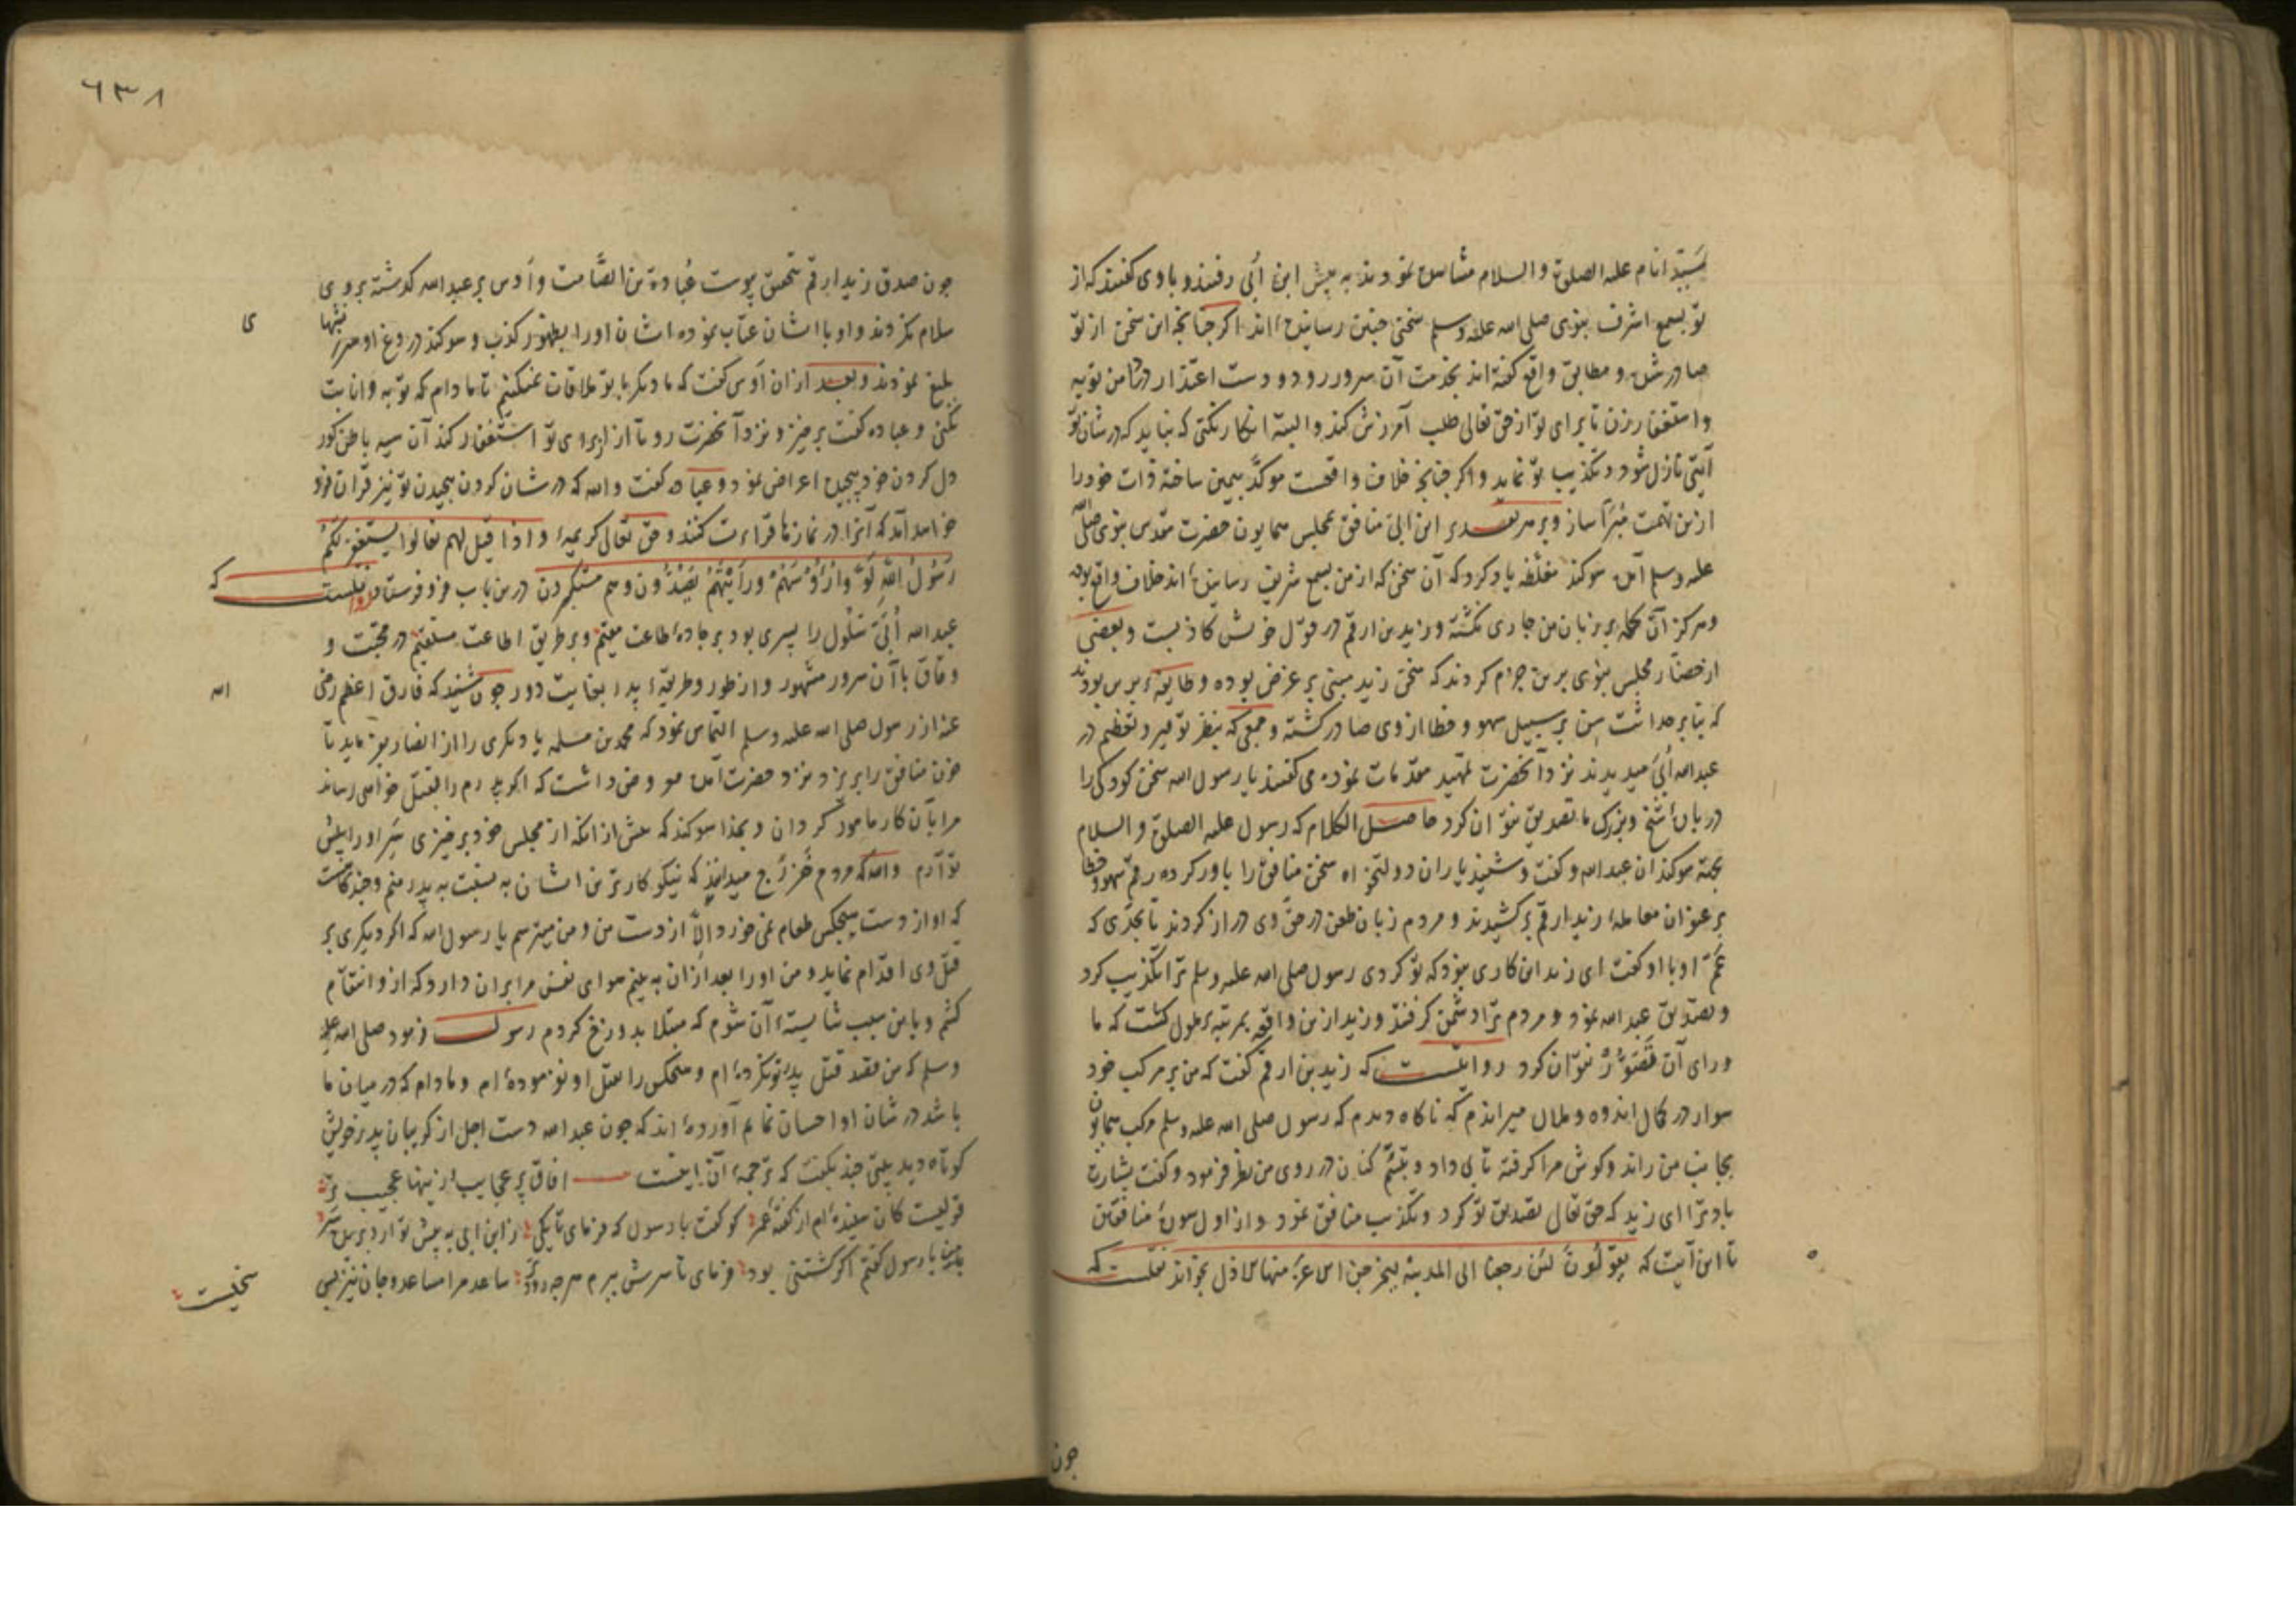 سید انام علیه الصلوة والسلام مشاهده نمودند به پیش ابن أبی رفتند و با وی گفتند که از
تو بسمع اشرف نبوی صلی الله علیه وسلم سخنی چنین رسانیده‌اند اکر چنانچه این سخن از تو
صادر شده و مطابق واقع گفته‌اند بخدمت آن سرور رو و دست اعتذار در دامن توبه
و استغفار زن تا برای تو از حق تعالی طلب آمرزش کند و البته انکار نکنی که نباید که در شان تو
آیتی نازل شود و تکذیب تو نماید و اکر چنانچه خلاف واقعست موکّد بیمین ساخته ذات خود را
ازین تهمت مُبَرّا ساز و بر هر تقدیر ابن ابی منافق بمجلس همایون حضرت مقدس نبوی صلی الله
علیه وسلم آمده سوکند مغلّظه یاد کرد که آن سخن که از من بسمع شریف رسانیده‌اند خلاف واقع بوده
و هرکز آن کلمه بر زبان من جاری نکشته و زید بن ارقم در قول خویش کاذبست و بعضی
از حضّار مجلس نبوی برین جزم کردند که سخن زید مبنی بر غرض بوده و طایفهٔ برین بودند
که بنا بر حداثت سِن بر سبیل سهو و خطا از وی صادر کشته و جمعی که بنظر توقیر و تعظیم در
عبدالله أبیّ میدیدند نزد آنحضرت تمهید مقدمات نموده می گفتند یا رسول الله سخن کودکی را
در بارهٔ شیخ و بزرک ما تصدیق نتوان کرد حاصل الکلام که رسول علیه الصلوة والسلام
بجهة سوکند ان عبدالله و گفت و شنید یاران دولتخواه سخن منافق را باور کرده رقم سهو و خطا
بر عنوان معاملهٔ زید ارقم برکشیدند و مردم زبان طعن در حقّ وی دراز کردند تا بحدّی که
عَمّ او با او گفت ای زید این کاری بود که تو کردی رسول صلی الله علیه وسلم ترا تکذیب کرد
و تصدیق عبدالله نمود و مردم ترا دشمن کرفتند و زید ازین واقعه بمرتبهٔ ملول کشت که ما
ورای آن تَصَوُّر نتوان کرد روایتست که زید بن ارقم گفت که من بر مرکب خود
سوار در کمال اندوه و ملال میراندم که ناکاه دیدم که رسول صلی الله علیه وسلم مرکب همایون
بجانب من راند و کوش مرا کرفته تابی داد و تبسّم کنان در روی من نظر فرمود و گفت بشارت
باد ترا ای زید که حق تعالی تصدیق تو کرد و تکذیب منافق نمود و از اول سورهٔ منافقین
تا این آیت که یقولُونَ لئن رجعنا الی المدینة لیخرجن الاعزّ منها الاذل بخواند نقلست که
جون
٦٣٨
جون صدق زید ارقم بتحقق پیوست عُبادة بن الصَّامت و أوس بر عبدالله کذشته بر وی
سلام نکردند و او با ایشان عتاب نموده ایشان اورا بظهور کذب و سوکند دروغ او سرزنشها
ی
بلیغ نمودند و بعد ازان أوس گفت که ما دیکر با تو ملاقات نمیکنیم تا مادام که توبه و انابت
نکنی و عباده گفت برخیز و نزد آنحضرت رو تا از برای تو استغفار کند آن سیه باطن کور
دل کردن خود پیچیده اعراض نمود و عباده گفت والله که در شان کردن پیچیدن تو نیز قرآن فرود
خواهد آمد که آنرا در نمازها قراءت کنند و حق تعالی کریمهٔ و اذا قیل لهم تعالوا یستغفر لَکُمْ
رَسُولُ اللهِ لَوَّوا رُؤُسَهُمْ ورَأَیْتَهُمْ یَصُدُّونَ وهم مستکبرون درین باب فرو فرستاد نقلست که
عبدالله أُبَیّ سَلُول را پسری بود بر جادهٔ طاعت مقیم و بر طریق اطاعت مستقیم در محبّت و
وفاق با آن سرور مشهور و از طور و طریقهٔ پدر بغایت دور جون شنید که فارق اعظم رضی
الله
عنه از رسول صلی الله علیه وسلم التماس نمود که محمد بن مسلمه یا دیکری را از انصار بفرماید تا
خون منافق را بریزد نزد حضرت آمده معروض داشت که اکر پدرم را بقتل خواهی رساند
مرا بآن کار مامور گردان و بخدا سوکند که پیش از انکه از مجلس خود برخیزی سَر اورا پیش
تو آرم والله که مردم خَزرَج میدانند که نیکوکارتر من ایشان به نسبت به پدر منم و چندکاهست
که او از دست هیچکس طعام نمی خورد والاّ از دست من و من میترسم یا رسول الله که اکر دیکری بر
قتل وی اقدام نماید و من اورا بعد ازان به بینم هوای نفس مرا بران دارد که ازو انتقام
کشم و باین سبب شایستهٔ آن شوم که مبتلا بدوزخ کردم رسول فرمود صلی الله علیه
وسلم که من قصد قتل پدر تو نکرده‌ام و هیچکس را بقتل او نفرموده‌ام و مادام که در میان ما
باشد در شان او احسان نمایم آورده‌اند که جون عبدالله دست اجل از کریبان پدر خویش
کوتاه دید بیتی چند بکفت که ترجمهٔ آن اینست افاق پر عجایب از ینها عجیب تر
قولیست کان شنیده‌ام از گفتهٔ عمر کو گفت با رسول که فرمای تا یکی از ابن ابی به پیش تو آرد بریده سَر
من با رسول گفتم اکر کشتنی بود فرمای تا سرش ببرم هرچه زودتر ساعد مرا مساعد و جان نیز بس
سخیست